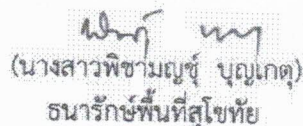 (นางสาวพิชามญชุ์ บุญเกตุ)
ธนารักษ์พื้นที่สุโขทัย